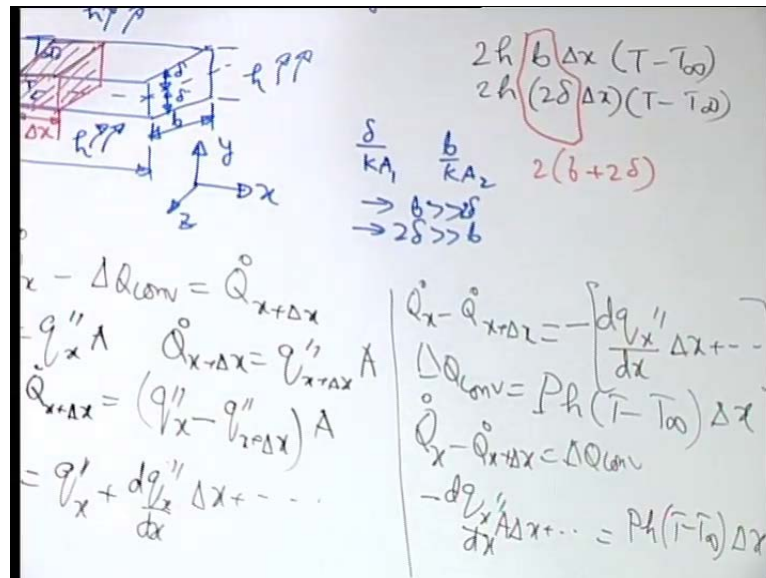 h↑↑
T∞
h↑↑
Δx
h↑↑
δ
δ
b
y
x
z
2h b Δx (T-T∞)
2h (2δ Δx)(T-T∞)
2(b+2δ)
δ/KA₁ b/KA₂
→ b>>2δ
→ 2δ>>b
x - ΔQconv = Q̇x+Δx
- q″x A Q̇x+Δx = q″x+Δx A
Q̇x+Δx = (q″x - q″x+Δx) A
= q″x + dq″x/dx Δx + - - - -
Q̇x - Q̇x+Δx = -[dqx″/dx Δx + - -
ΔQconv = Ph(T-T∞) Δx
Q̇x - Q̇x+Δx = ΔQconv
-dqx″/dx AΔx + ·· = Ph(T-T∞) Δx